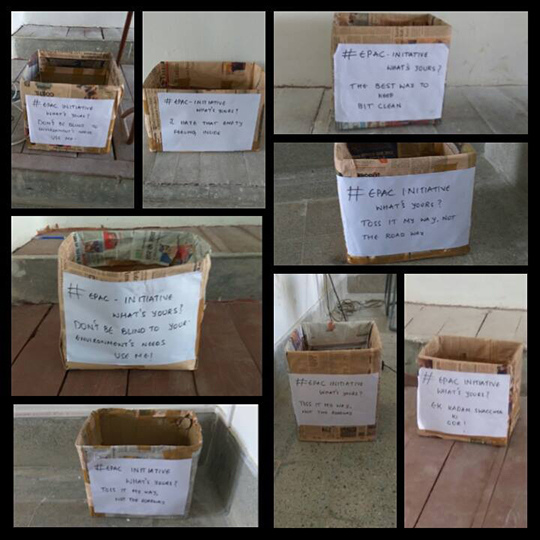 # EPAC INITIATIVE
WHAT'S YOURS?
DON'T BE BLIND TO
ENVIRONMENT'S NEEDS
USE ME!
# EPAC - INITIATIVE
WHAT'S YOURS?
I HATE THAT EMPTY
FEELING INSIDE
# EPAC - INITIATIVE
WHAT'S YOURS?
THE BEST WAY TO
KEEP
BIT CLEAN
# EPAC INITIATIVE
WHAT'S YOURS?
TOSS IT MY WAY, NOT
THE ROAD WAY
# EPAC - INITIATIVE
WHAT'S YOURS?
DON'T BE BLIND TO YOUR
ENVIRONMENT'S NEEDS
USE ME!
# EPAC INITIATIVE
WHAT'S YOURS?
TOSS IT MY WAY,
NOT THE ROADWAY
# EPAC INITIATIVE
WHAT'S YOURS?
EK KADAM SWACHHTA
KI
OOR!
# EPAC INITIATIVE
WHAT'S YOURS?
TOSS IT MY WAY,
NOT THE ROADWAY